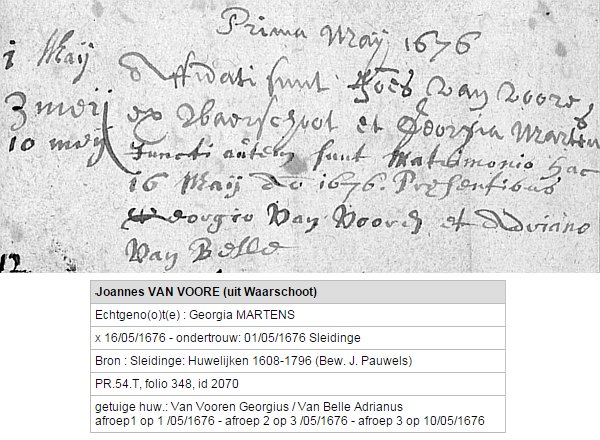 Prima Maij 1676
1 Maij
3 meij
10 meij
Affidati sunt Joes van voore
ex Waerschoot et Georgia Marten
Juncti autem sunt Matrimonio hac
16 Maij Ao 1676. Presentibus
Georgio Van Voore et Adriano
Van Belle
12
Joannes VAN VOORE (uit Waarschoot)
Echtgeno(o)t(e) : Georgia MARTENS
x 16/05/1676 - ondertrouw: 01/05/1676 Sleidinge
Bron : Sleidinge: Huwelijken 1608-1796 (Bew. J. Pauwels)
PR.54.T, folio 348, id 2070
getuige huw.: Van Vooren Georgius / Van Belle Adrianus
afroep1 op 1 /05/1676 - afroep 2 op 3 /05/1676 - afroep 3 op 10/05/1676